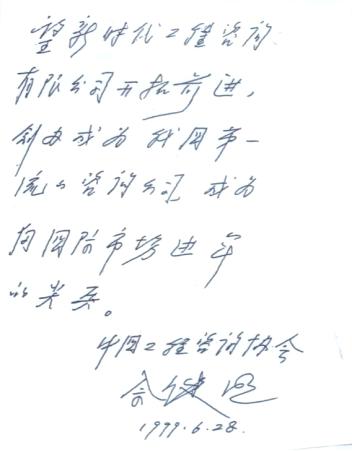 望新时代工程咨询
有限公司开拓前进,
创办成为我国第一
流的咨询公司 成为
向国际市场进军
的尖兵。
中国工程咨询协会
1999.6.28